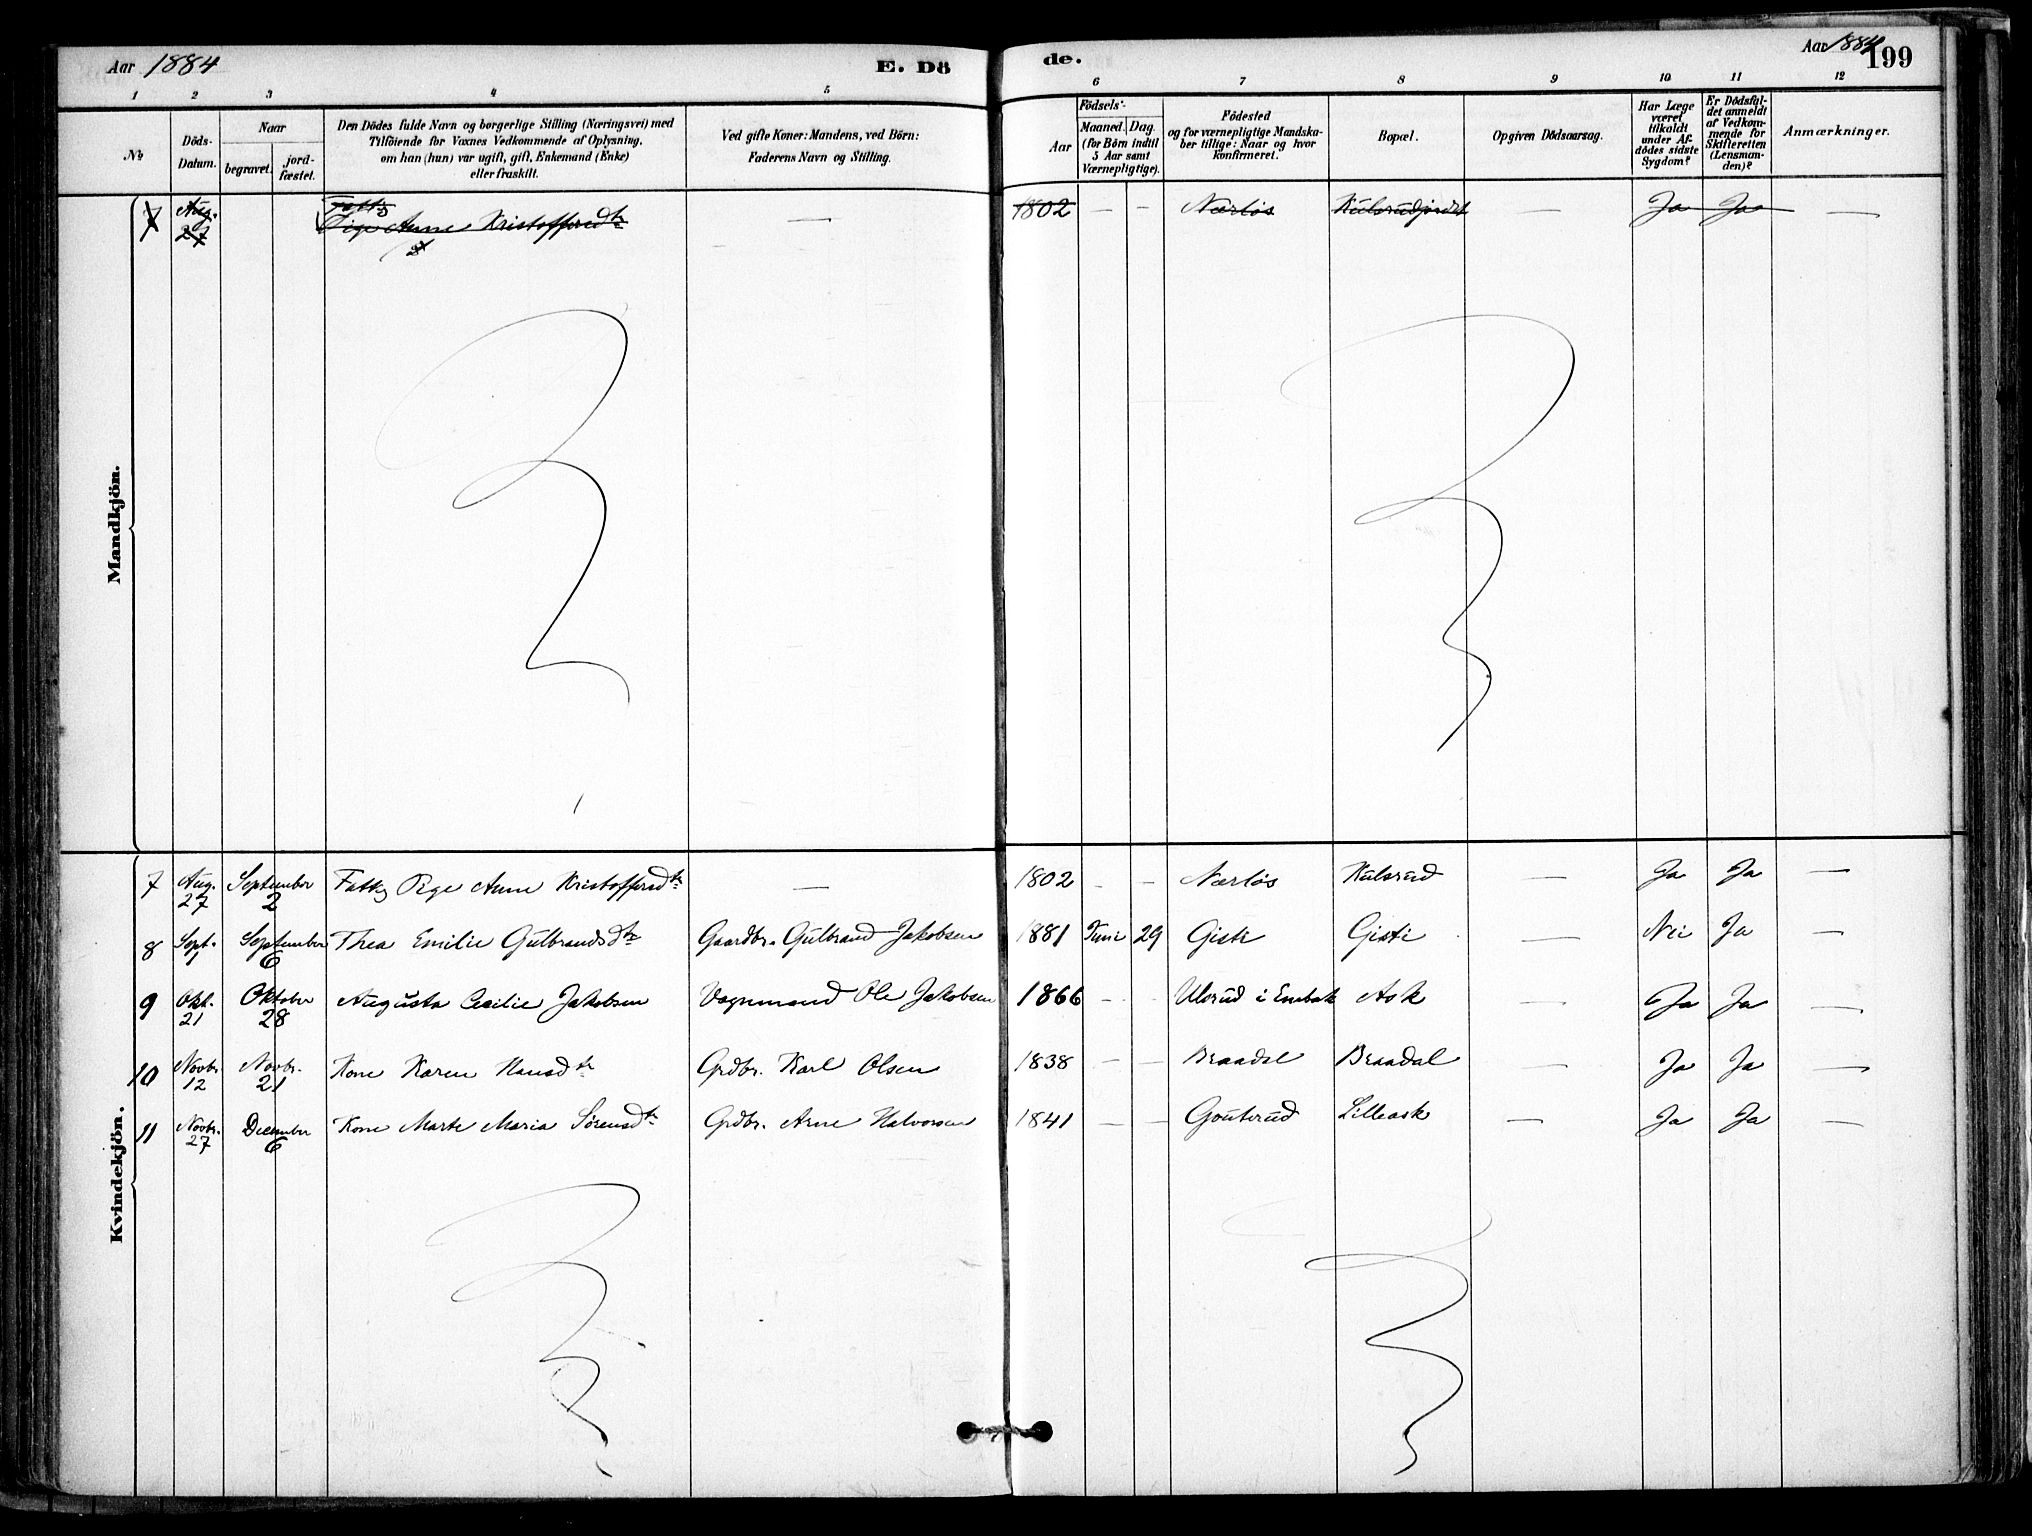 Aar 1884
E. Dö
de.
Aar 1884
199
1 2 3 4 5 6 7 8 9 10 11 12
No
Döds-
Datum.
Naar
begravet.
jord-
fæstet.
Den Dödes fulde Navn og borgerlige Stilling (Næringsvei) med
Tilföiende for Voxnes Vedkommende af Oplysning,
om han (hun) var ugift, gift, Enkemand (Enke)
eller fraskilt.
Ved gifte Koner: Mandens, ved Börn:
Faderens Navn og Stilling.
Födsels-
Aar
Maaned. Dag.
(for Börn indtil
5 Aar samt
Værnepligtige).
Födested
og for værnepligtige Mandska-
ber tillige: Naar og hvor
konfirmeret.
Bopæl.
Opgiven Dödsaarsag.
Har Læge
været
tilkaldt
under Af-
dödes sidste
Sygdom?
Er Dödsfal-
det anmeldt
af Vedkom-
mende for
Skifteretten
(Lensman-
den)?
Anmærkninger.
Mandkjön.
7 Aug. 27 Fattig Pige Anne Kristoffersdtr — 1802 — — Nærløs — Ja Ja —
Kvindekjön.
7 Aug. 27 September 2 Fattig Pige Anne Kristoffersdtr — 1802 - - Nærløs Kulsrud — Ja Ja —
8 Sept. 1 September 6 Thea Emilie Gulbrandsdtr Gaardbr. Gulbrand Jakobsen 1881 Juni 29 Gisti Gisti — Nei Ja —
9 Okt. 21 Oktober 28 Augusta Cecilie Jakobsen Vognmand Ole Jakobsen 1866 - - Ulsrud i Ask — Ja Ja —
10 Novbr. 12 Novbr. 21 Kone Karen Hansdtr Grdbr. Karl Olsen 1838 — — Braadal Braadal — Ja Ja —
11 Novbr. 27 December 6 Kone Marte Maria Sörensdtr Grdbr. Arne Halvorsen 1841 — — Gouterud Lilleask — Ja Ja —